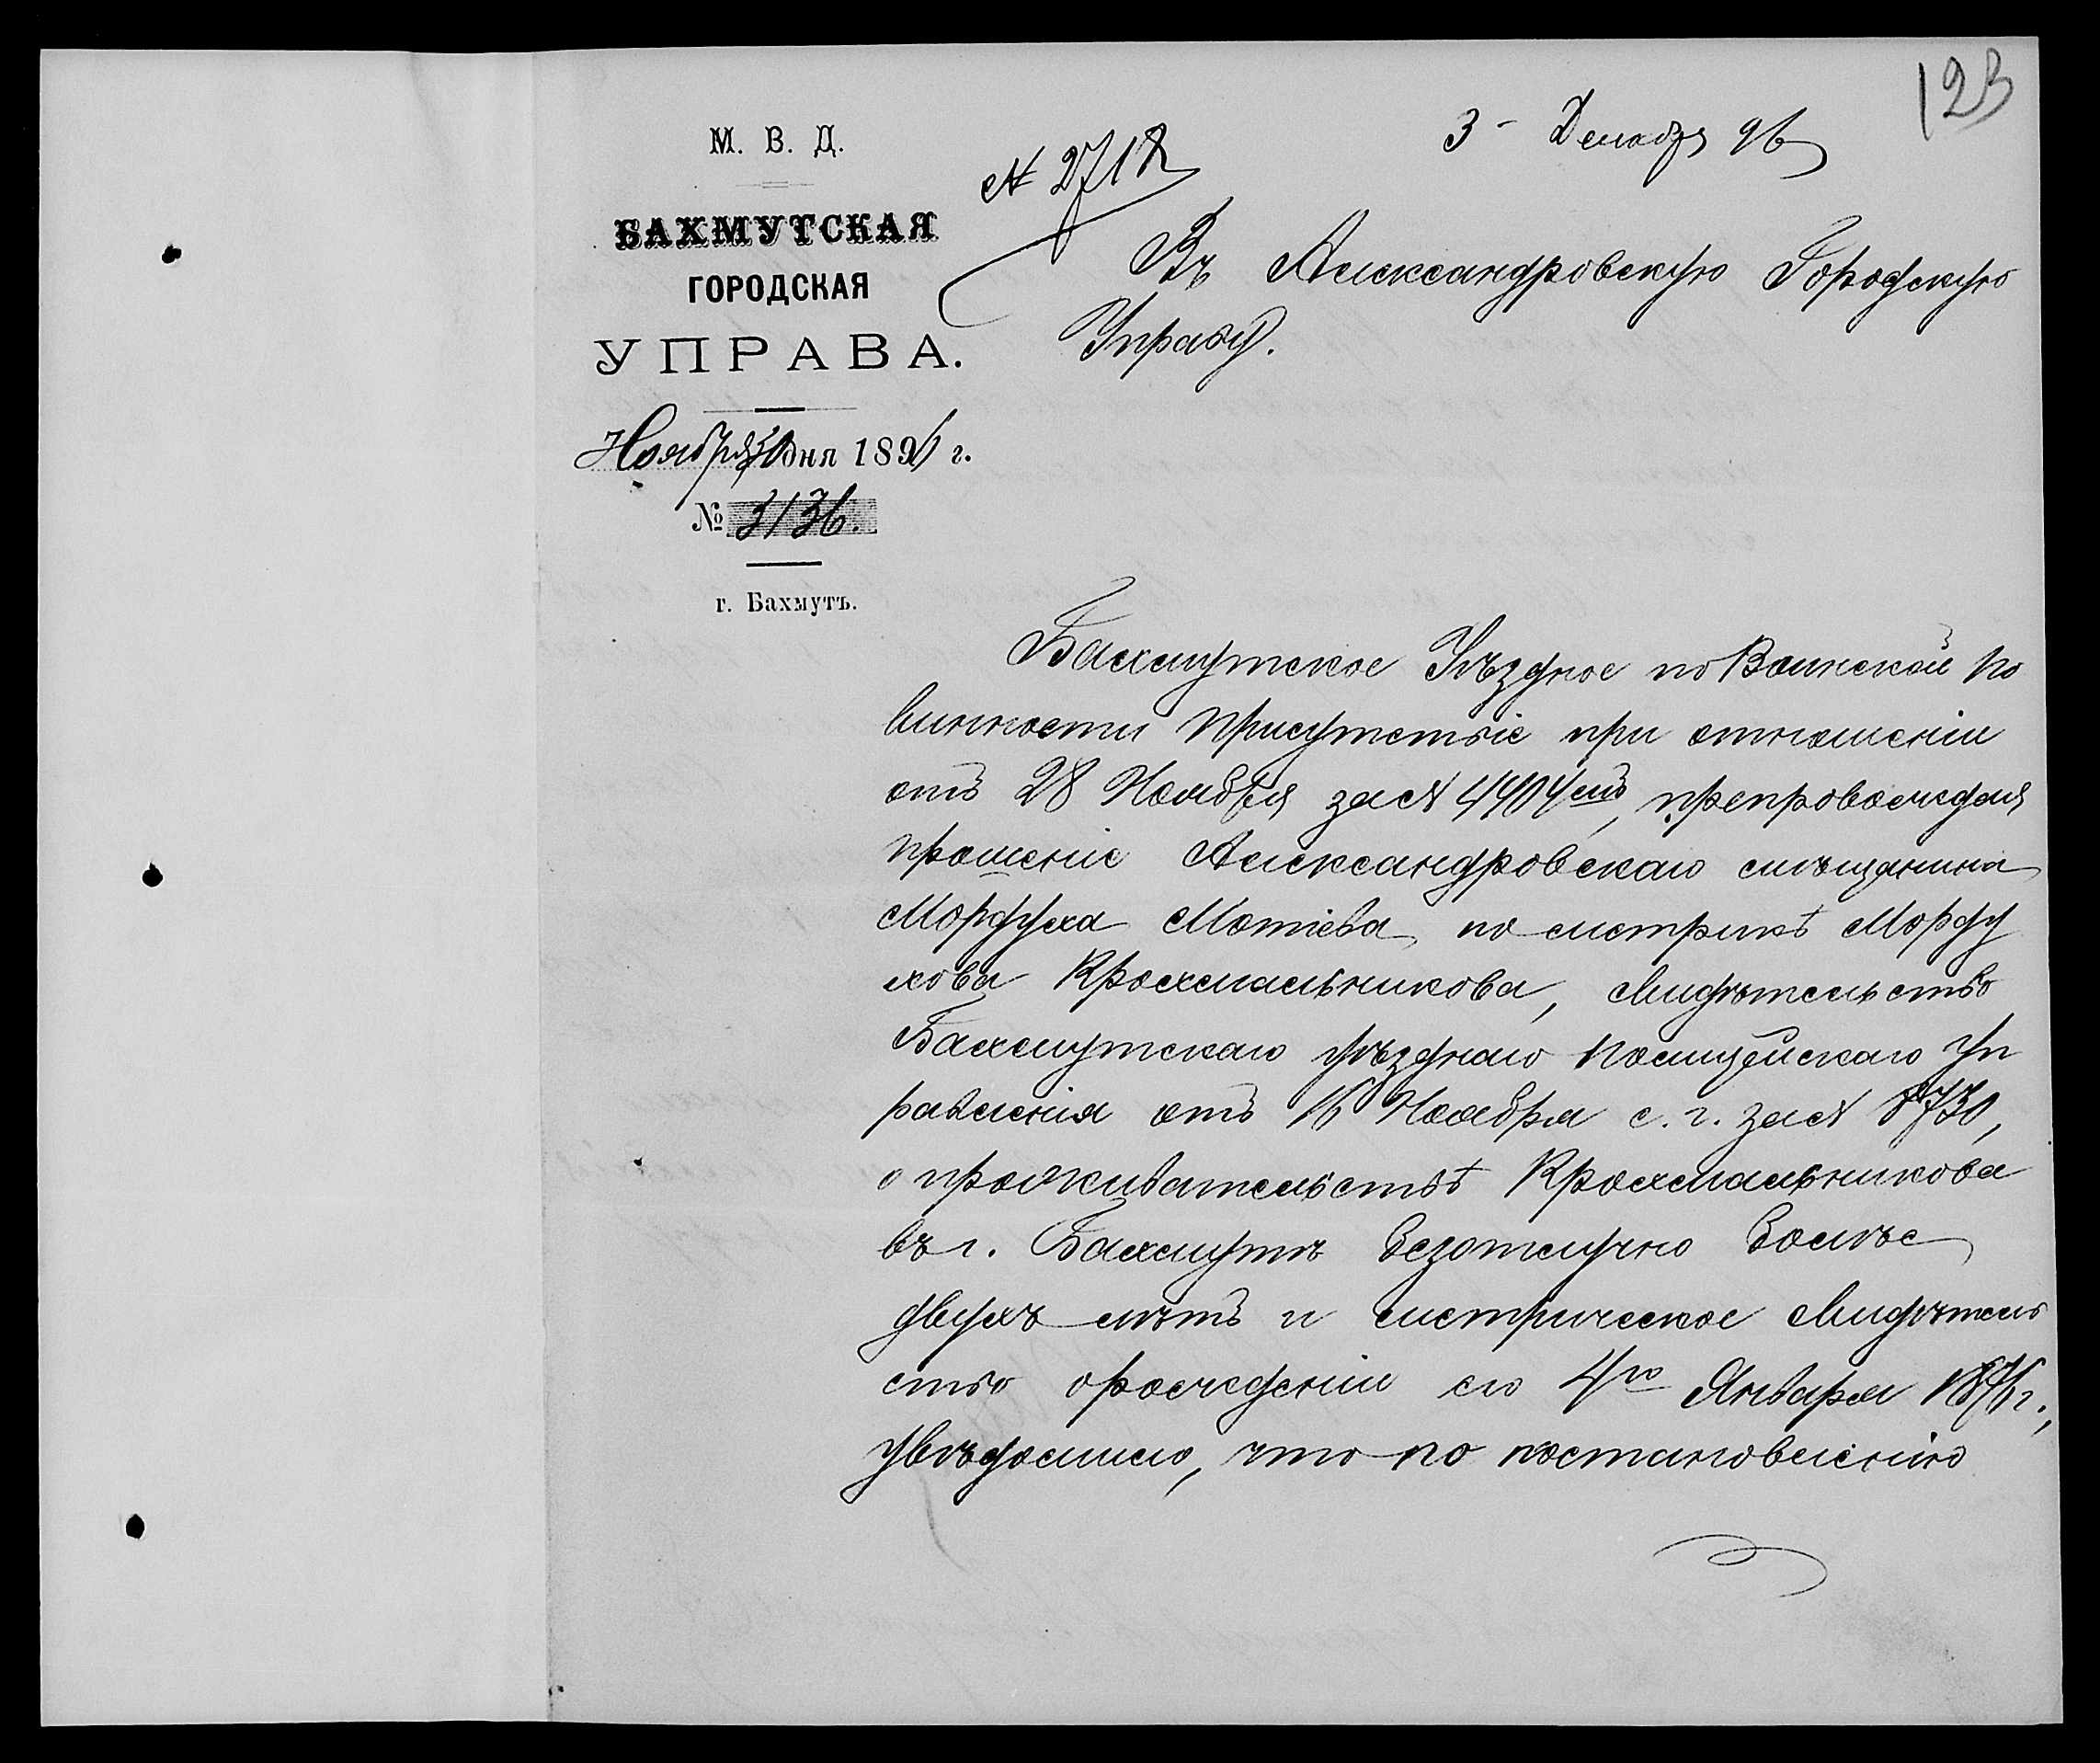 123
3 - Декабря 96
№ 2718
М. В. Д.
БАХМУТСКАЯ
ГОРОДСКАЯ
УПРАВА.
Ноября 30 дня 1896 г.
№ 3136.
г. Бахмутъ.
Въ Александровскую Городскую
Управу.
Бахмутское Уѣздное по Воинской по
винности Присутствіе при отношеніи
отъ 28 Ноября за № 4404мъ, препровождая
прошеніе Александровскаго мѣщанина
Мордуха Мотіева, по метрикѣ Морду
хова Крохмальникова, свидѣтельство
Бахмутскаго уѣзднаго Полицейскаго Уп
равленія отъ 16 Ноября с. г. за № 8730,
о проживательствѣ Крохмальникова
въ г. Бахмутѣ безотлучно болѣе
двухъ лѣтъ и метрическое свидѣтель
ство о рожденіи его 4го Января 1876 г.,
увѣдомило, что по постановленію